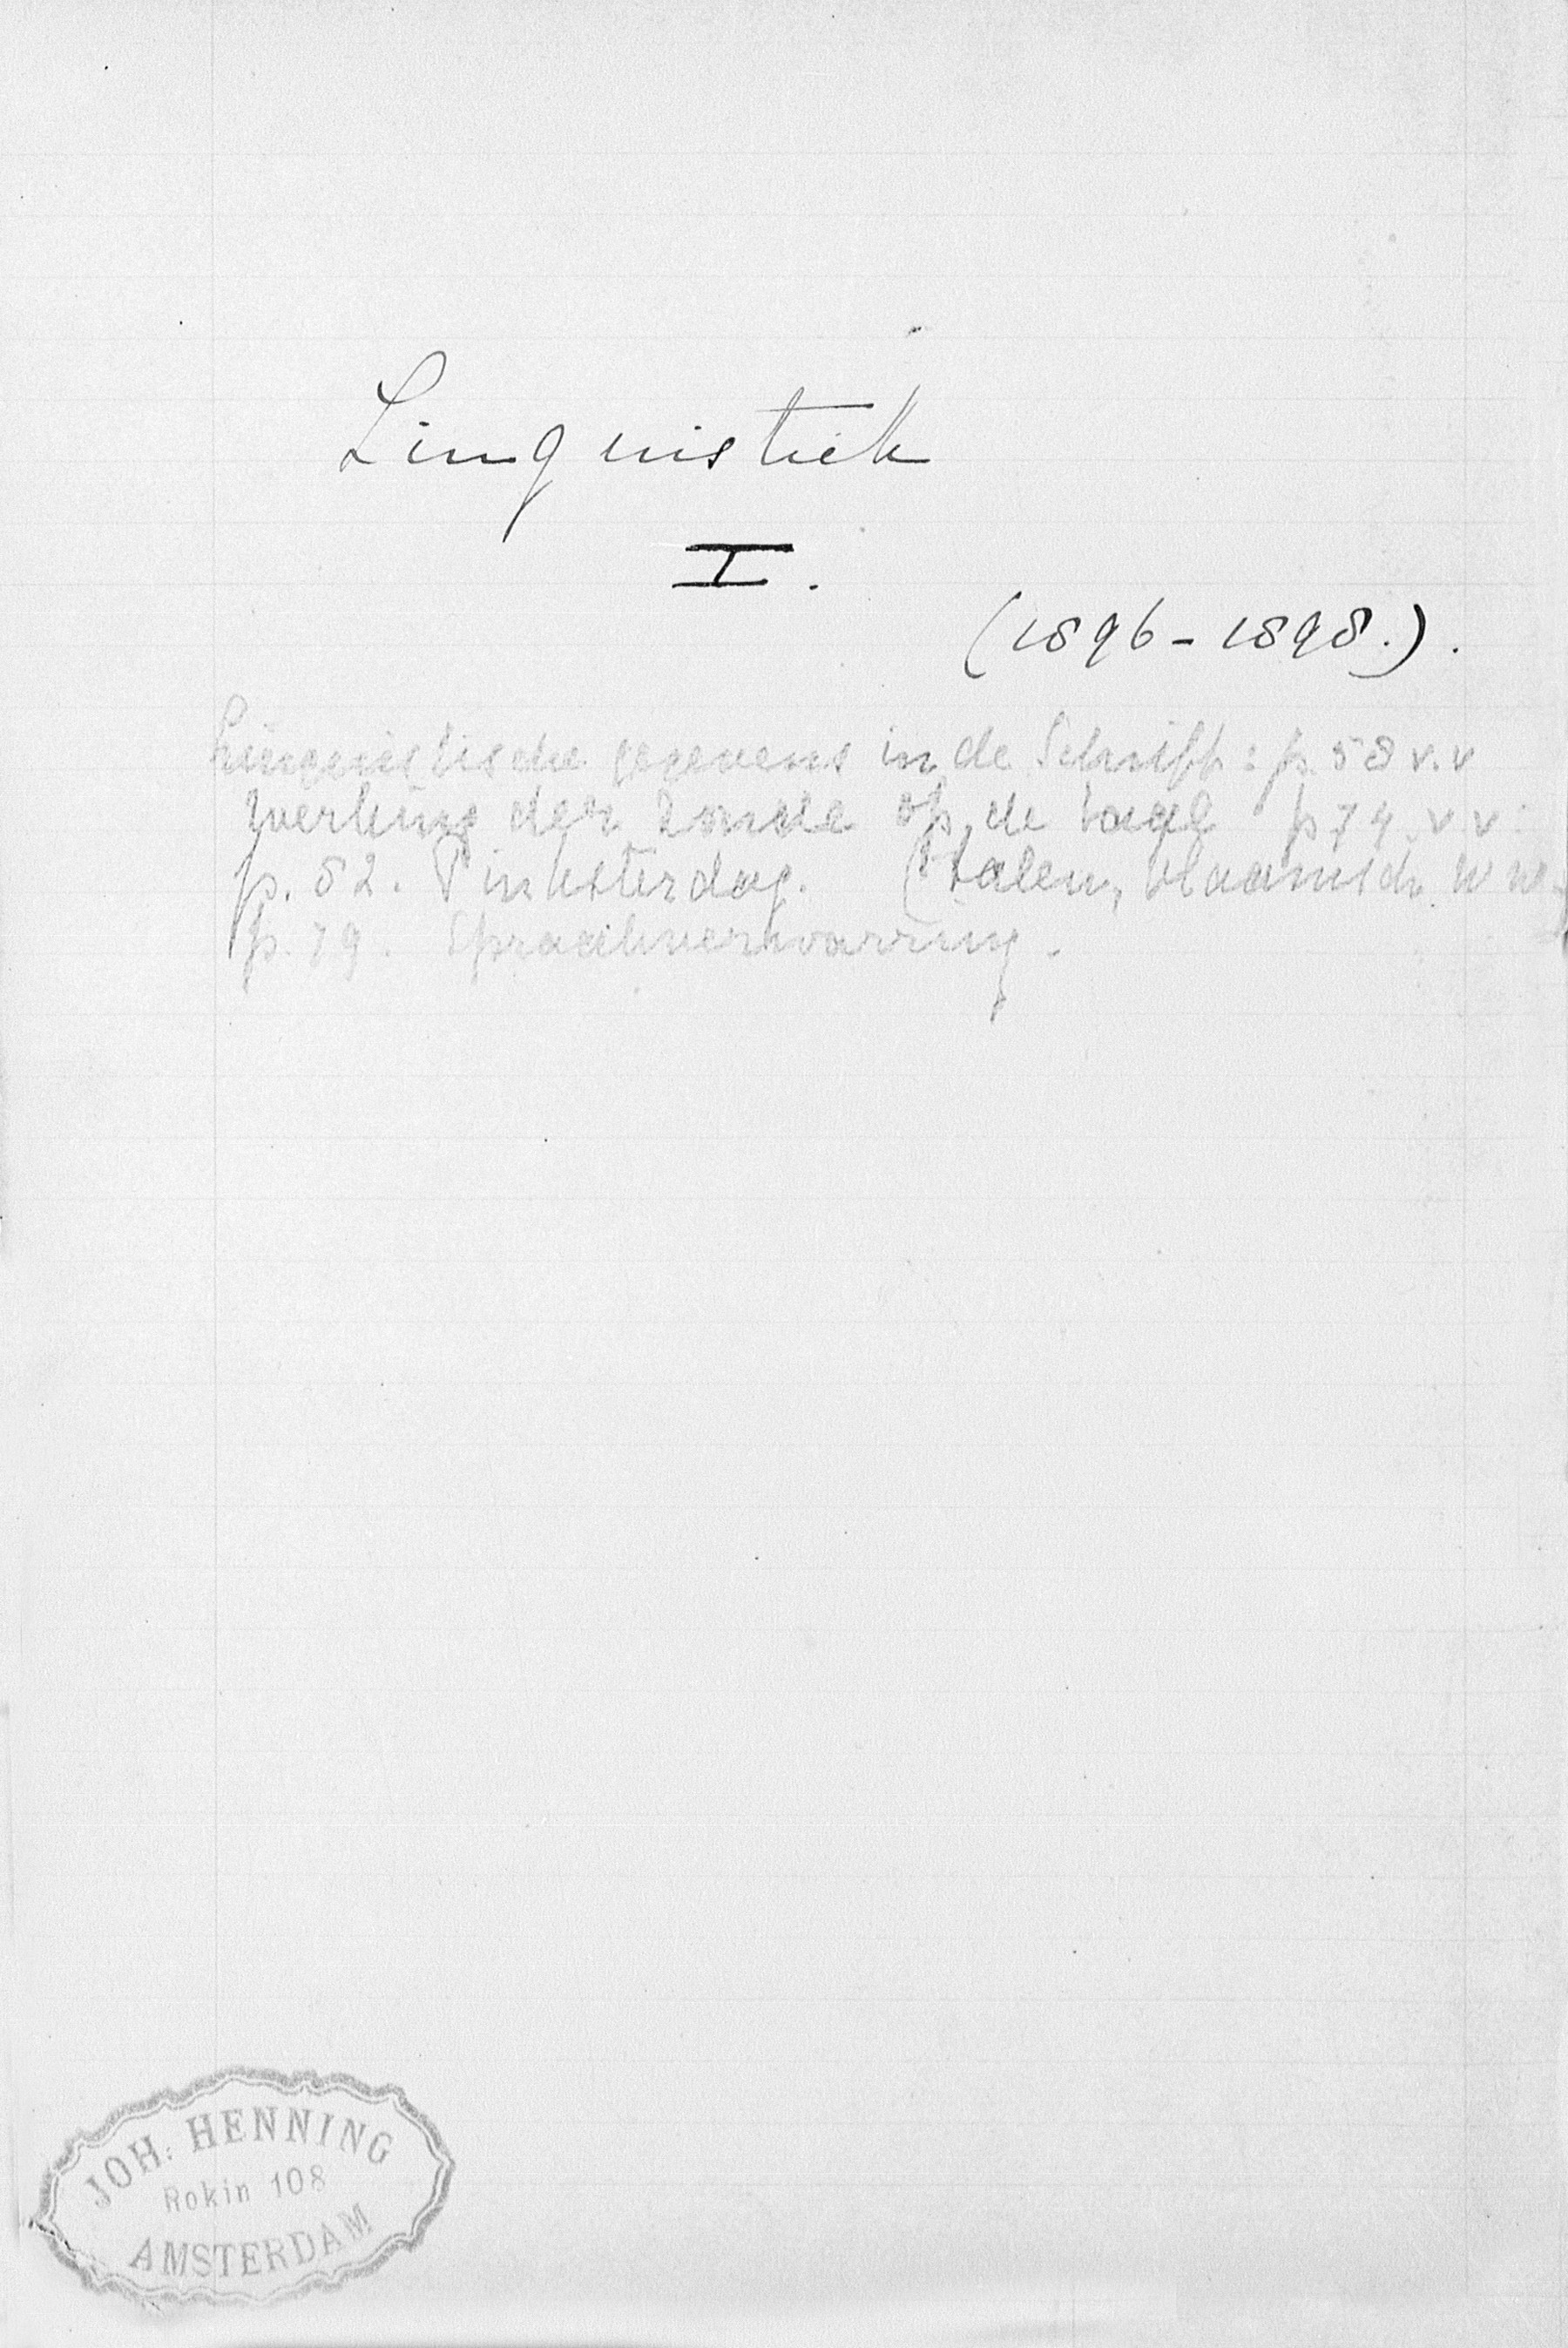 Linguistiek
I.
(1896-1898.).
Linguistische gegevens in de Schrift: p. 58 v.v
werking der zonde op de taal p 74 v.v.
p. 82. Pinksterdag. (talen,
p. 79. Spraakverwarring.
JOH: HENNING
Rokin 108
AMSTERDAM